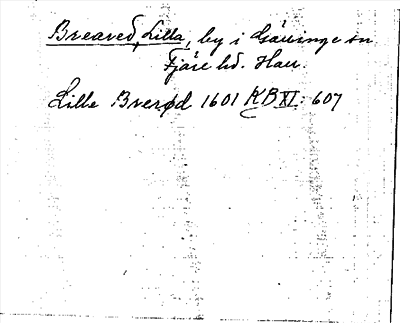 Breared, Lilla, by i Gällinge sn
Fjäre hd. Hall.
Lille Brerød 1601 KB XI: 607